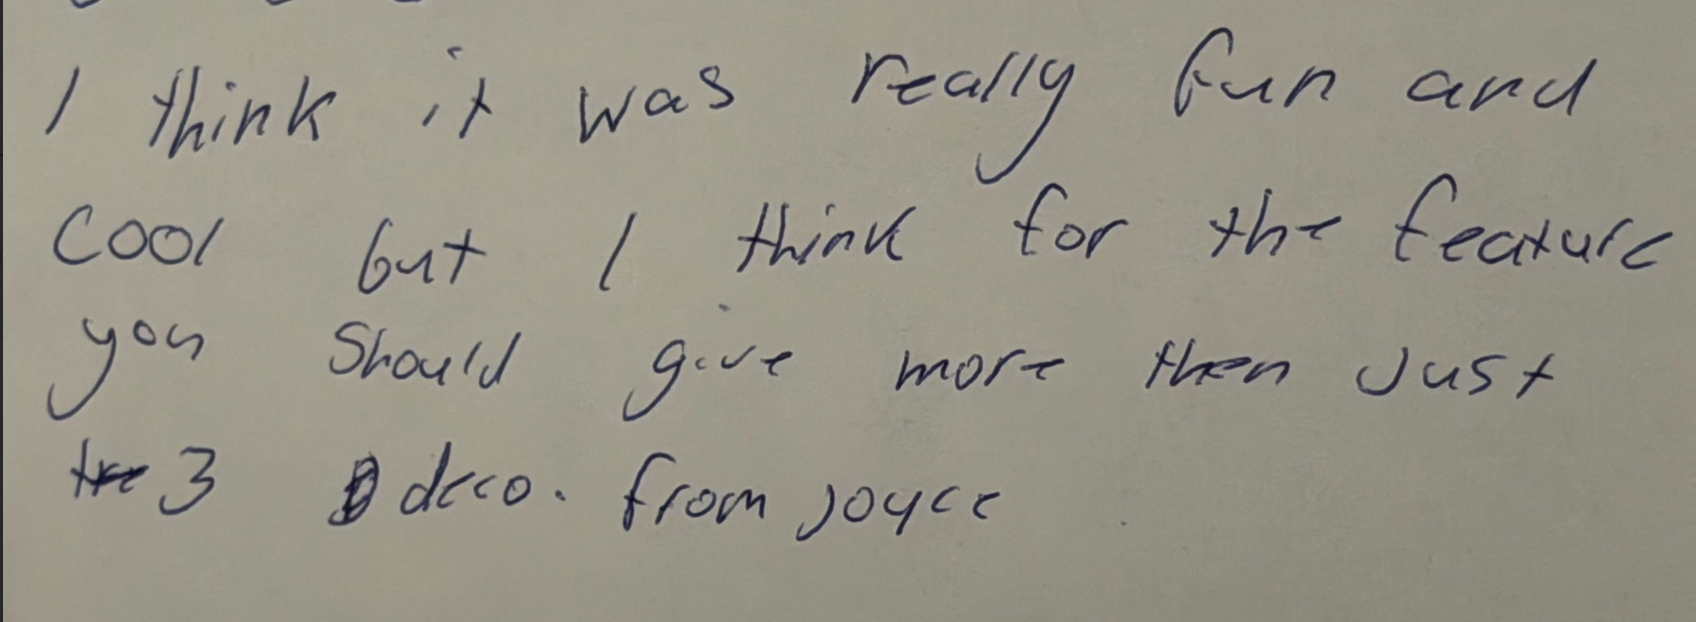 I think it was really fun and
cool but I think for the feature
you should give more then just
3 deco. from joyce